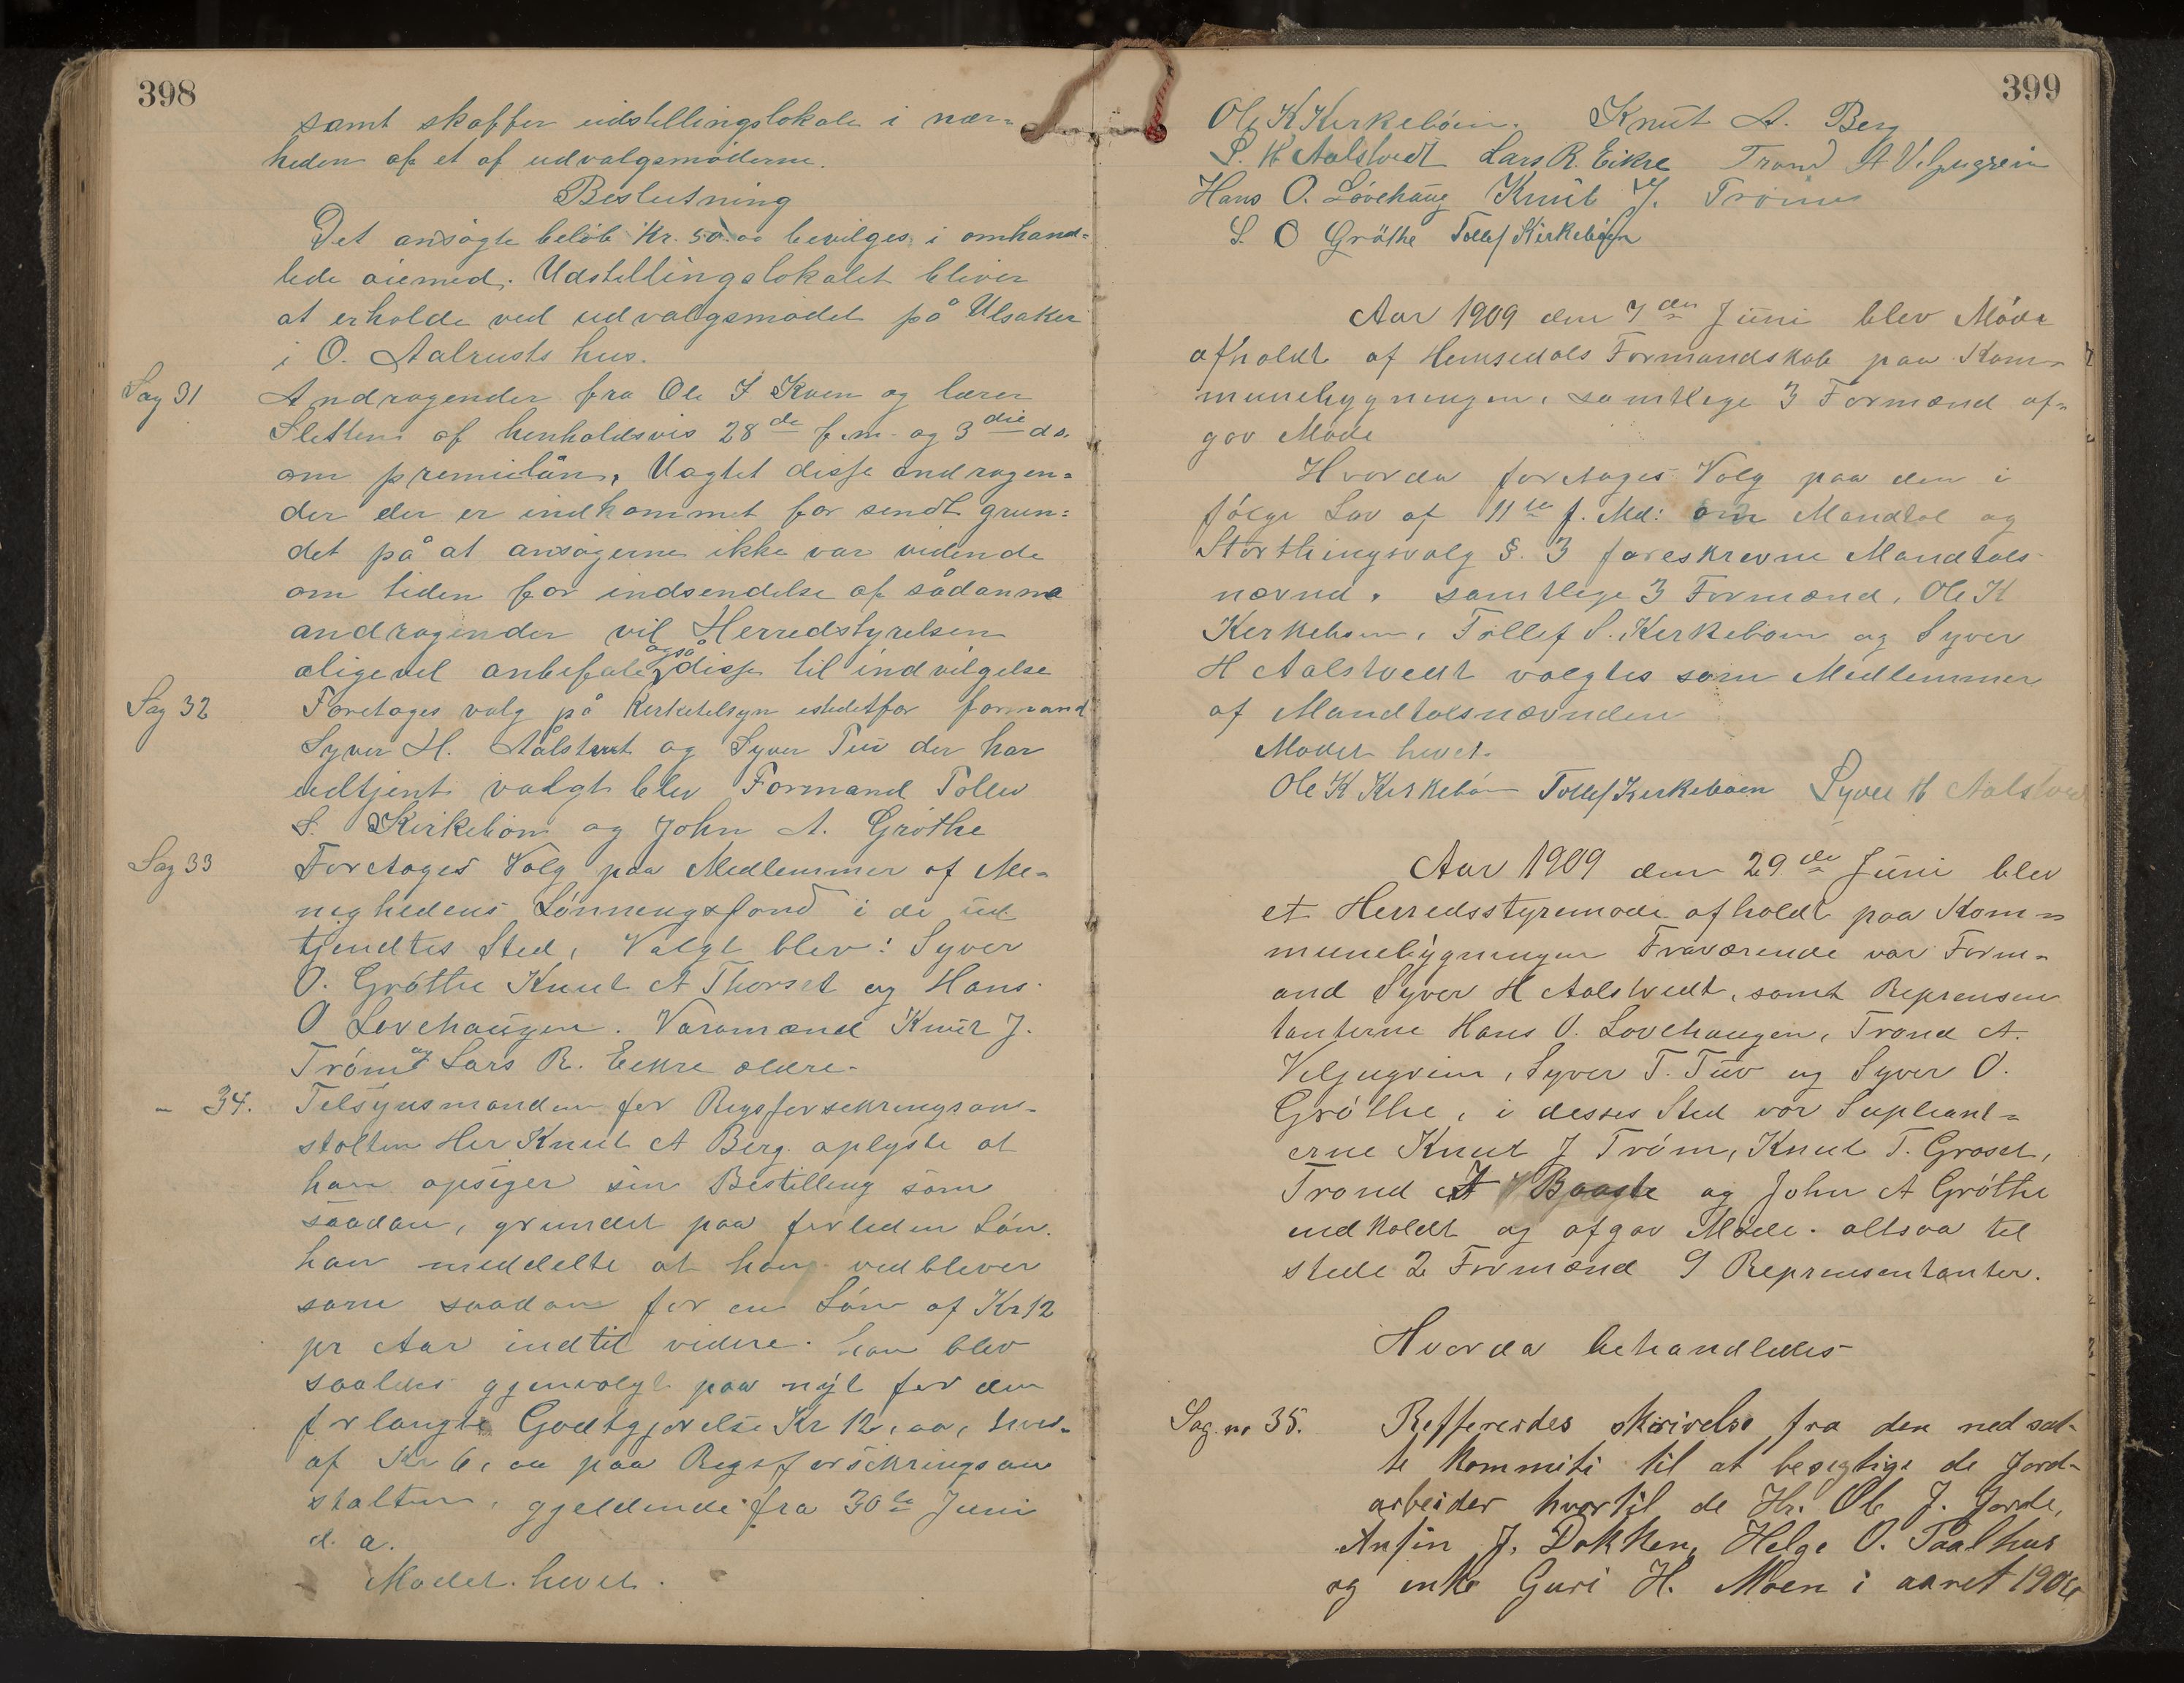 398
samt skaffer udstillingslokale i nær-
heden af et af udvalgsmøderne.
Beslutning
Det ansøgte beløb Kr. 50.00 bevilges i omhand-
lede øiemed. Udstillingslokalet bliver
at erholde ved udvalgsmødet på Ulsaker
i O. Aalrusts hus.
Sag 31 Andragender fra Ole I Kven og lærer
Sletten af henholdsvis 28de f.m. og 3die ds.
om premielån. Uagtet disse andragen-
der der er indkommet for sendt grun-
det på at ansøgerne ikke var vidende
om tiden for indsendelse af sådanne
andragender vil Herredstyrelsen
aligevel anbefale også disse til indvilgelse
Sag 32 Foretages valg på Kirketilsyn istedetfor formand
Syver H. Aalstveit og Syver Tuv der har
udtjent valgt blev Formand Tollev
S. Kirkebøen og John A. Grøthe
Sag 33 Foretages Valg paa Medlemmer af Me-
nighedens Lønningsfond i de ud
tjendtes Sted, Valgt blev: Syver
O. Grøthe Knut A Thorset og Hans
O Løvehaugen. Varamænd Knut J.
Trøim og Lars R. Eikre ældre.
- 34. Tilsynsmanden for Rigsforsikringsan-
stalten Her Knut A Berg oplyste at
han opsiger sin Bestilling som
saadan, grundet paa forliden Løn.
han meddelte at han vedbliver
som saadan for en Løn af Kr 12
pr Aar indtil videre. han blev
saaledes gjenvalgt paa nyt for den
forlangte Godtgjørelse Kr 12,00, hvor-
af Kr 6,00 paa Rigsforsikringsan
stalten, gjeldende fra 30te Juni
d. a.
Mødet hevet.
399
Ole K Kirkebøen. Knut A. Berg
S. H Aalstvedt Lars R. Eikre Trond A Veljugrein
Hans O. Løvehaug Knut J. Trøim
S. O Grøthe Tollef Kirkebøen
Aar 1909 den 7den Juni blev Møde
afholdt af Hemsedals Formandskab paa Kom-
munebygningen, samtlige 3 Formænd af-
gav Møde
Hvorda foretages Valg paa den i
følge Lov af 11te f. Md: om Mandtal og
Storthingsvalg §. 3 foreskrevne Mandtals
nævnd. samtlige 3 Formænd, Ole K
Kirkebøen, Tollef S. Kirkebøen og Syver
H Aalstvedt valgtes som Medlemmer
af Mandtalsnævnden
Mødet hevet.
Ole K Kirkebøen Tollef Kirkebøen Syver H Aalstved
Aar 1909 den 29de Juni blev
et Herredsstyremøde afholdt paa Kom-
munebygningen Fraværende var Form-
and Syver H Aalstvedt, samt Reprensen
tanterne Hans O. Løvehaugen, Trond A.
Veljugrein, Syver T. Tuv og Syver O.
Grøthe, i desses Sted var Supleant-
erne Knut J Trøim, Knut T. Grøset,
Trond Baaste og John A Grøthe
indkaldt og afgav Møde. altsaa til
stede 2 Formænd 9 Reprensentanter.
Hvorda behandledes
Sag. no 35. Reffereides skrivelse fra den nedsat-
te kommite til at besigtige de Jord-
arbeider hvortil de Hr. Ole J. Jorde,
Anfin J. Dokken, Helge O. Taalhus
og enke Guri H. Moen i aaret 1906